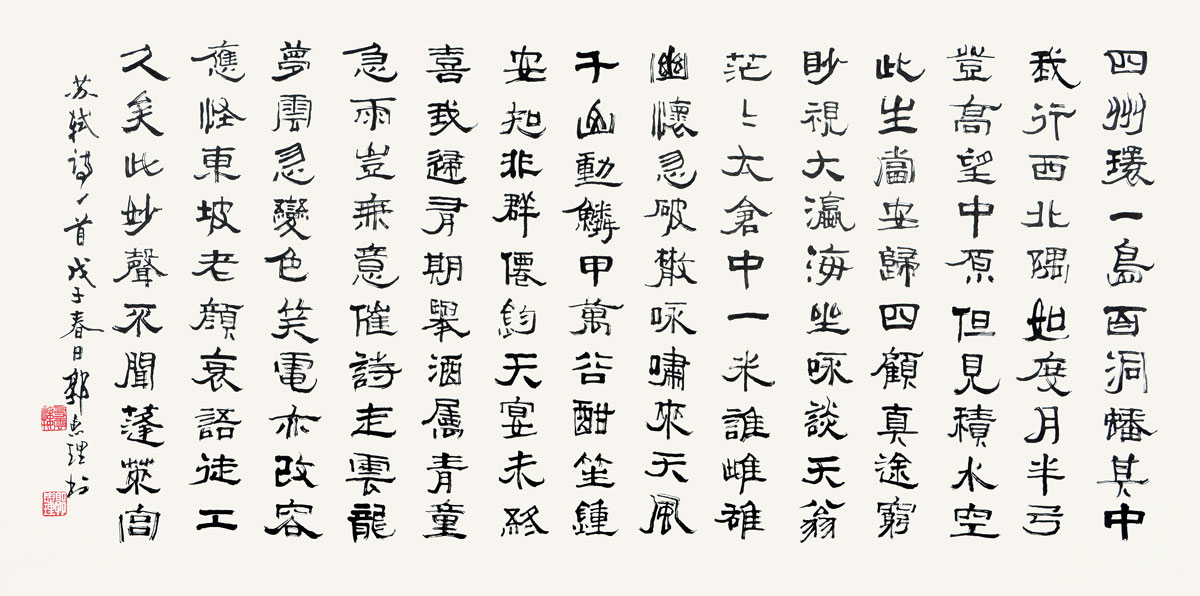 四州環一島百洞蟠其中
我行西北隅如度月半弓
登高望中原但見積水空
此生當安歸四顧真途窮
眇視大瀛海坐咏談天翁
茫々太倉中一米誰雌雄
幽懷忽破散咏嘯來天風
千山動鱗甲萬谷酣笙鍾
安知非群僊鈞天宴未終
喜我歸有期舉酒屬青童
急雨豈無意催詩走雲龍
夢雲忽變色笑電亦改容
應怪東坡老顏衰語徒工
久矣此妙聲不聞蓬萊宫
苏轼詩一首戊子春日郭惠理书